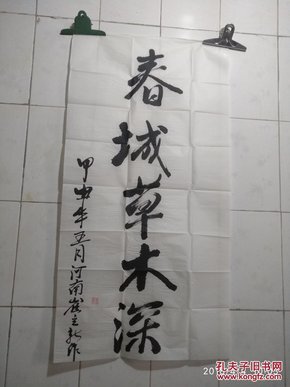 春城草木深
甲申年五月河南崔立新作
孔夫子旧书网